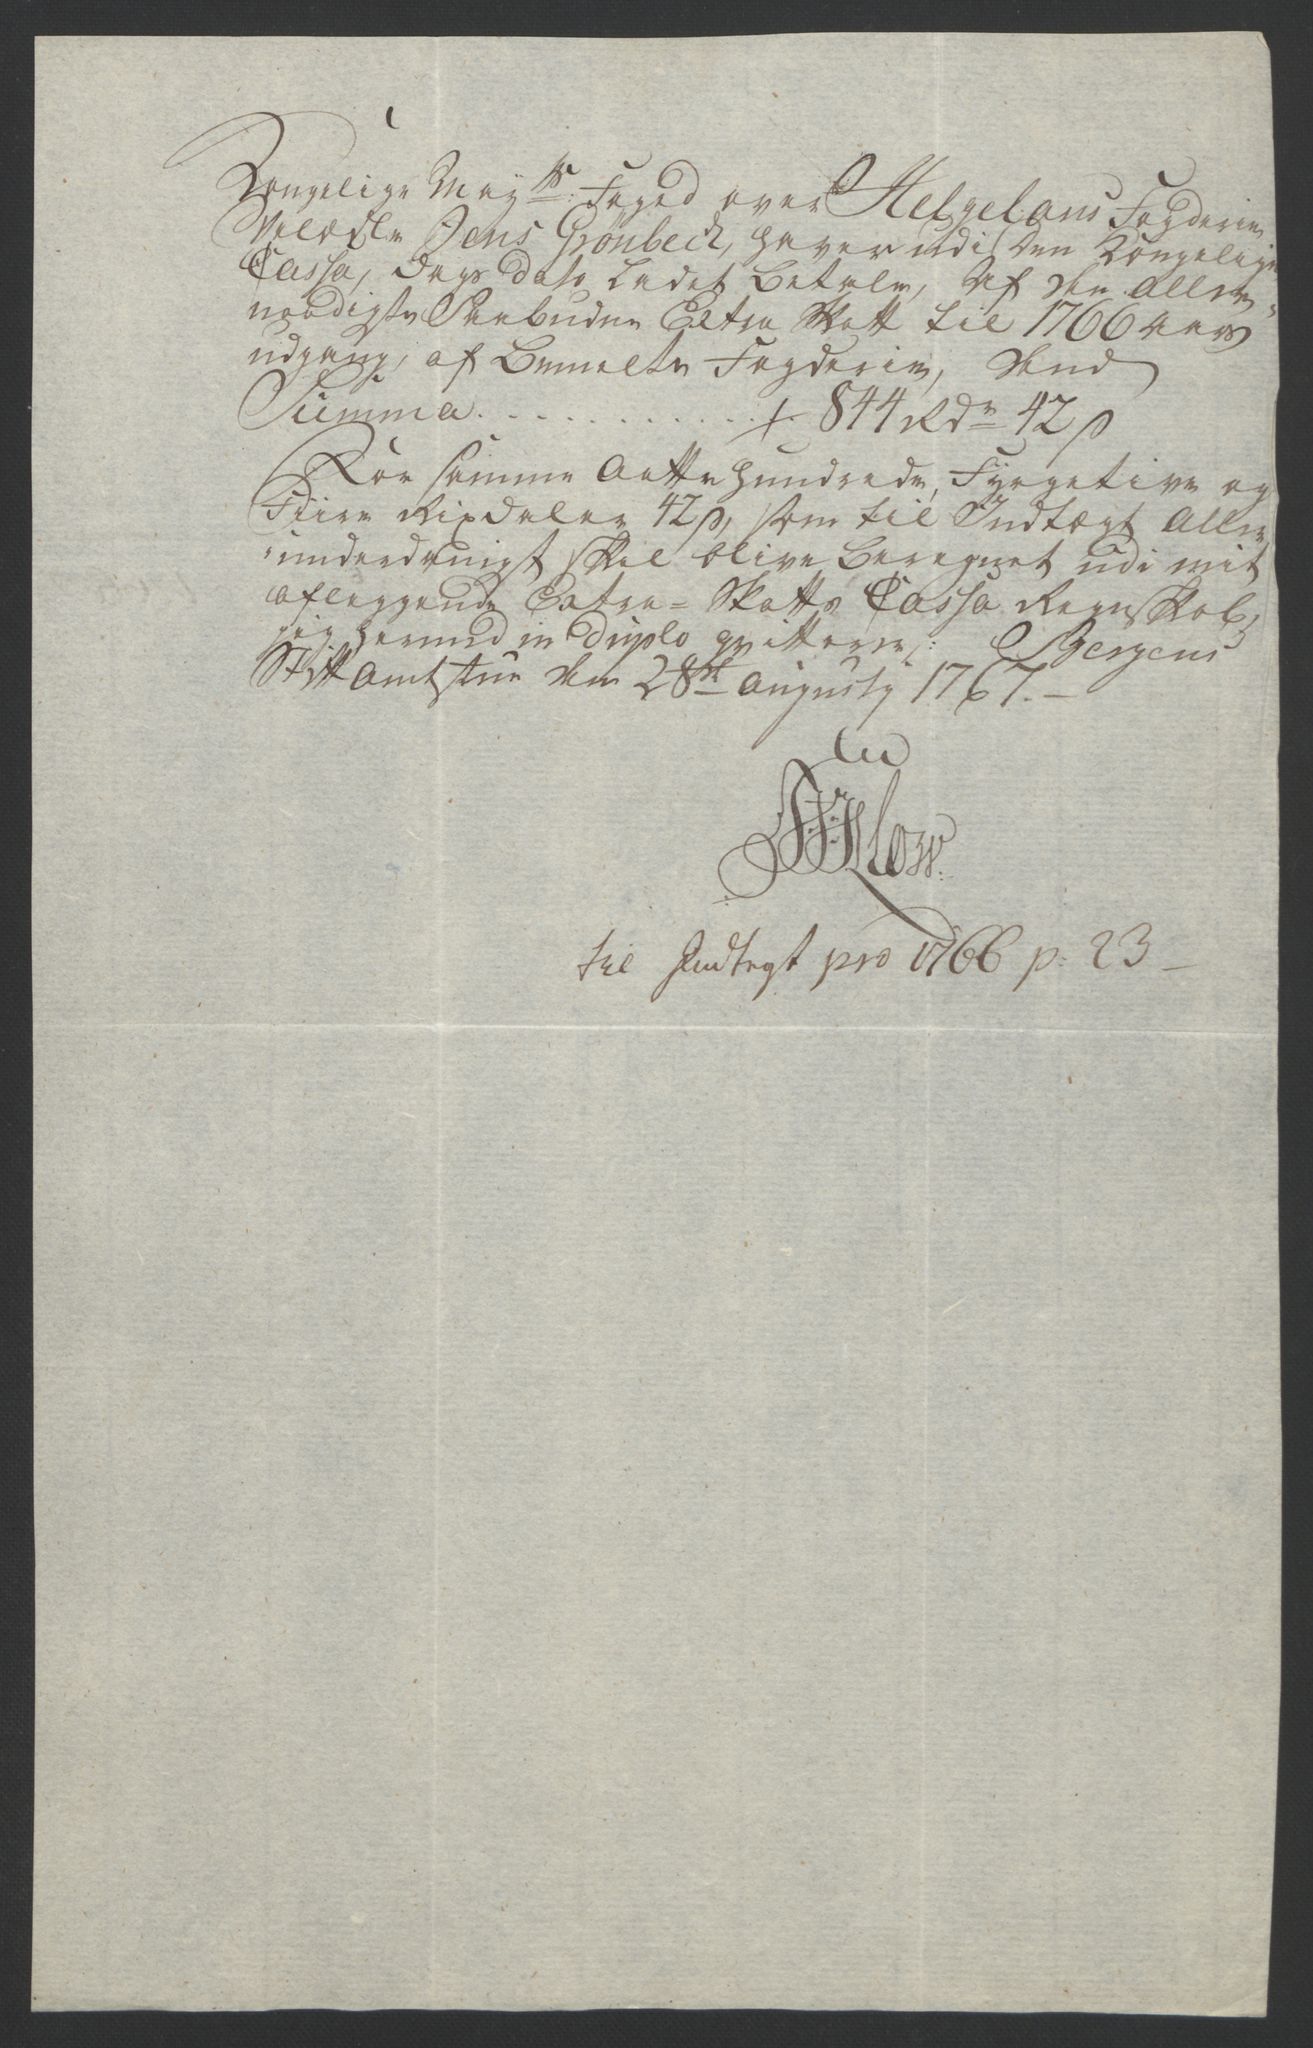 Kongelige Mayts: Foged over Helgelans Fogderie
Velædle Jens Grönbech, haver udi den Kongelige
Cassa, Dags Dato Ladet Betale, Af den Aller-
naadigste Paabudne Extra Skatt til 1766 Aars
udgang, af Bemelte Fogderie, den
Summa . . . . . . . . . . . 844 Rdr 42 s
For samme Aatte hundrede, Fyrgetive og
Fiire Rixdaler 42 s, som til Indtægt Aller
underdanigst skal blive Beregnet udi mit
aflæggende Extra-Skatts Cassa Regnskab,
jeg hermed in duplo qvitterer: Bergens
Stift Amtstue den 28de Augusty 1767.
til Indtegt pro 1766 p: 23